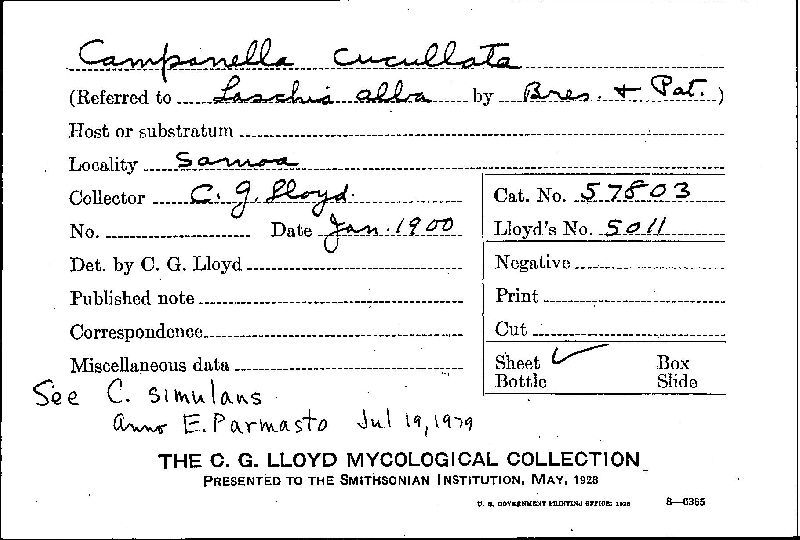 Campanella cucullata
(Referred to Laschia alba by Bres. + Pat.)
Host or substratum
Locality Samoa
Collector C. G. Lloyd. Cat. No. 57803
No. Date Jan. 1900 Lloyd's No. 5011
Det. by C. G. Lloyd Negative
Published note Print
Correspondence Cut
Miscellaneous data Sheet ✓ Box
Bottle Slide
See C. simulans
Anno E. Parmasto Jul 19, 1979
THE C. G. LLOYD MYCOLOGICAL COLLECTION
PRESENTED TO THE SMITHSONIAN INSTITUTION, MAY, 1928
U. S. GOVERNMENT PRINTING OFFICE: 1928 8—6365